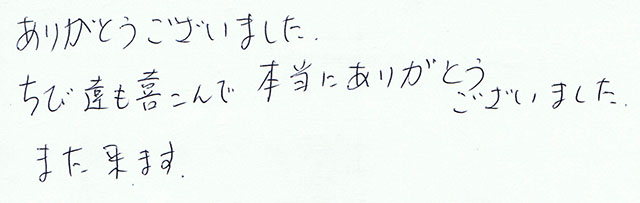 ありがとうございました.
ちび達も喜こんで 本当にありがとう
ございました.
また来ます.